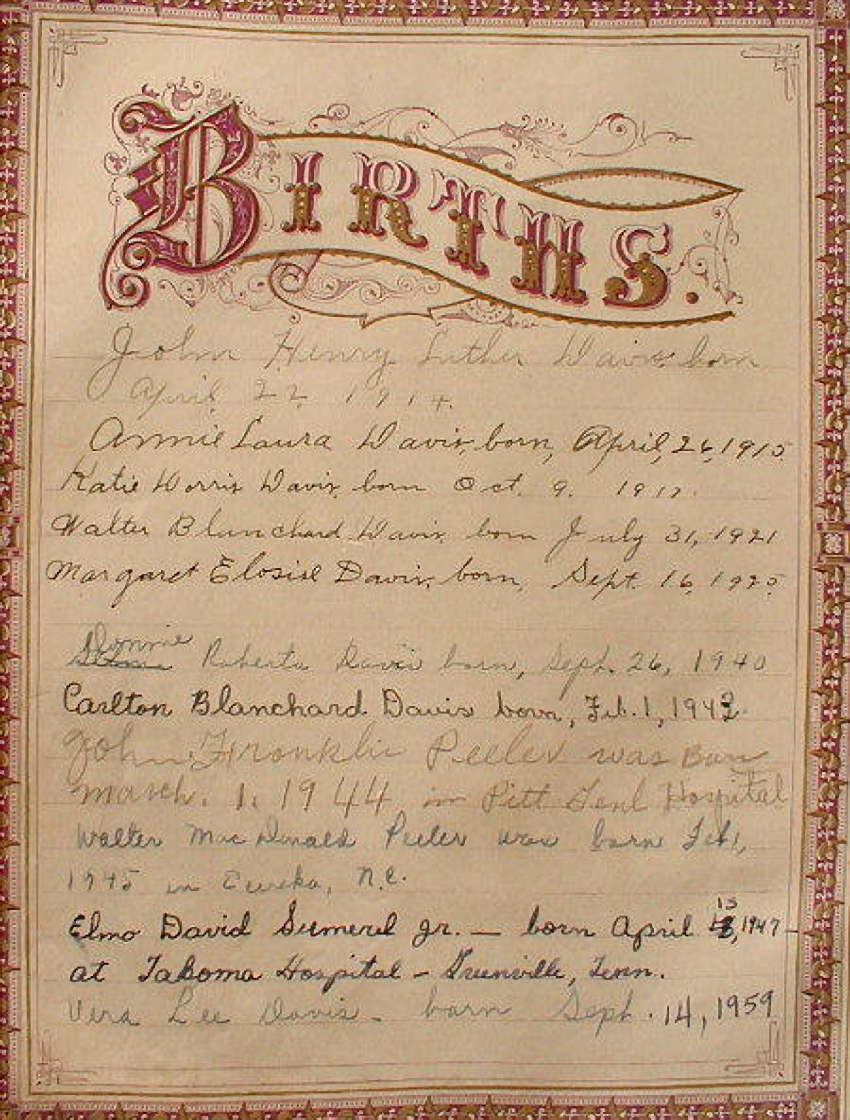 BIRTHS.
John Henry Luther Davis born
April 22 1914.
Annie Laura Davis, born, April, 26, 1915
Katie Morris Davis, born Oct. 9. 1917.
Walter Blanchard Davis, born July 31, 1921
Margaret Elosise Davis, born, Sept. 16, 1925
Donnie
Roberta Davis born, Sept. 26, 1940
Carlton Blanchard Davis born, Feb. 1, 1942.
John Franklin Peeler was Born
March. 1. 1944 in Pitt Genl Hospital
Walter MacDonald Peeler was born Feb 1,
1945 in Eureka, N.C.
Elmo David Sumerel jr. — born April 13, 1947 —
at Takoma Hospital – Greenville, Tenn.
Vera Lee Davis - born Sept. 14, 1959